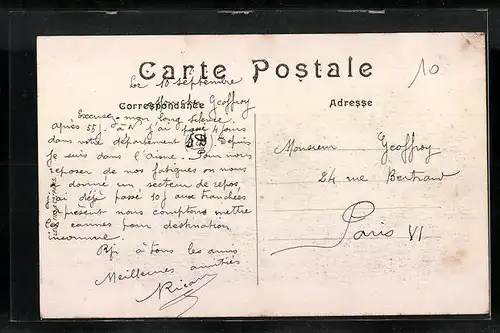 Carte Postale
10
Le 10 septembre
Correspondance
Adresse
Monsieur Geoffroy
Excusez mon long silence
après 55j. à j'ai passé 4 jours
dans votre département Depuis
je suis dans l'Aisne. Pour nous
reposer de nos fatigues on nous
a donné un secteur de repos
j'ai déjà passé 10j aux tranchées
à présent nous comptons mettre
les cannes pour destination
inconnue.
à tous les amis
Meilleures amitiés
Ricard
Monsieur Geoffroy
24 rue Bertrand
Paris VI